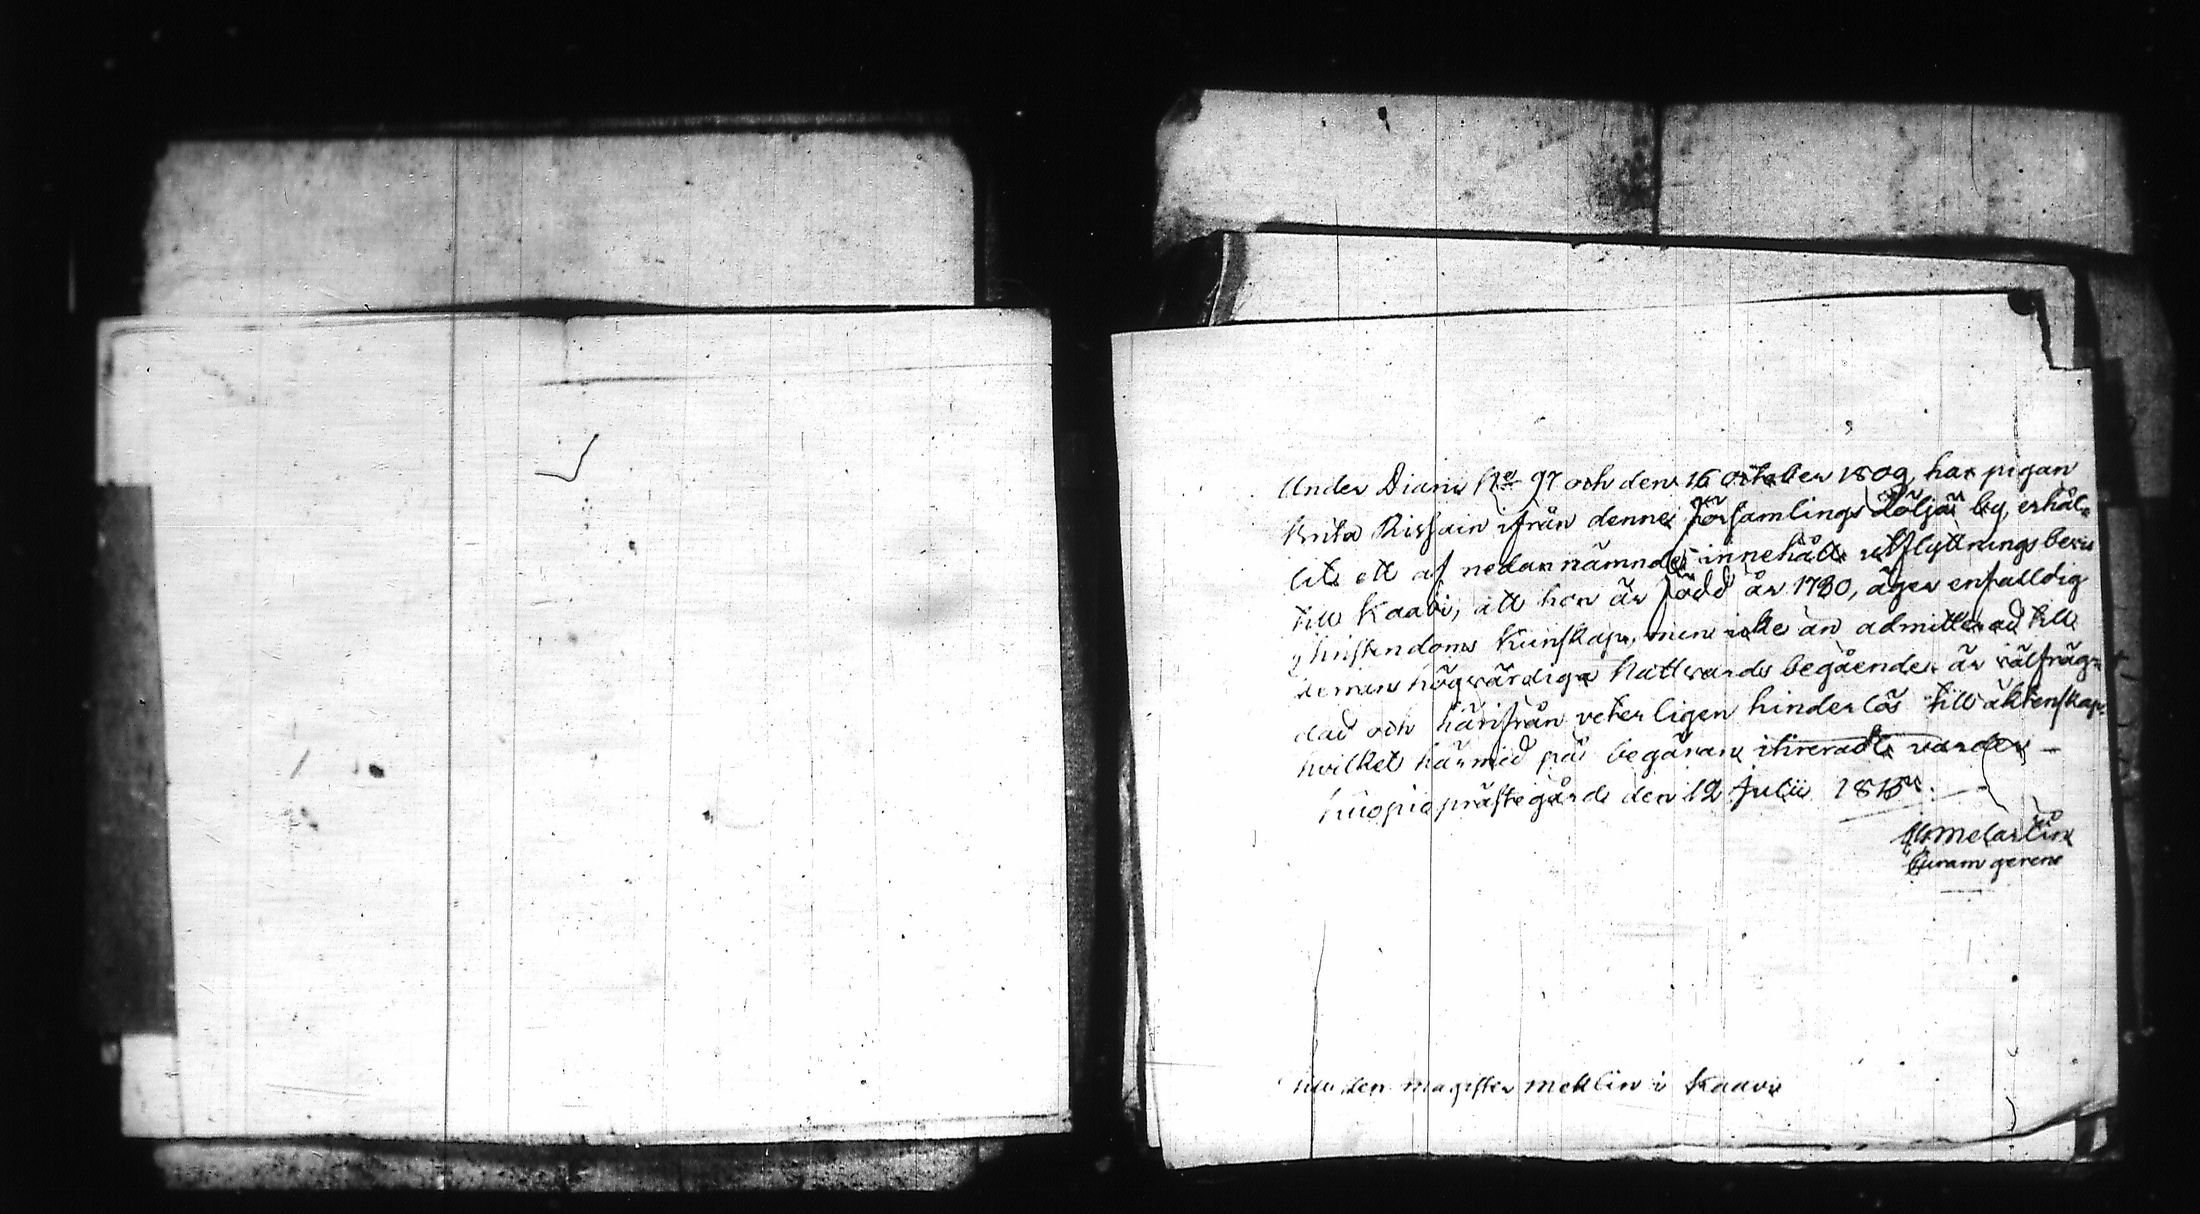 Under Diarii No 97 och den 16 October 1809, har pigan
Brita Rissain ifrån denne Församlings Döljäi by, erhål-
lit ett af nedannämnde innehåll utflyttningsbevis
till Kaavi, att hon är född år 1780, äger enfalldig
Christendoms kunskap, men icke än admitterad till
Herrans högvärdiga Nattvards begående, är välfräg-
dad och härifrån veterligen hinderlös till äktenskap,
hvilket härmed på begäran itireradt varder —
Kuopio prästegård den 12 Julii
Melartin
Curam gerens
till den magister Mellin i Kaavi